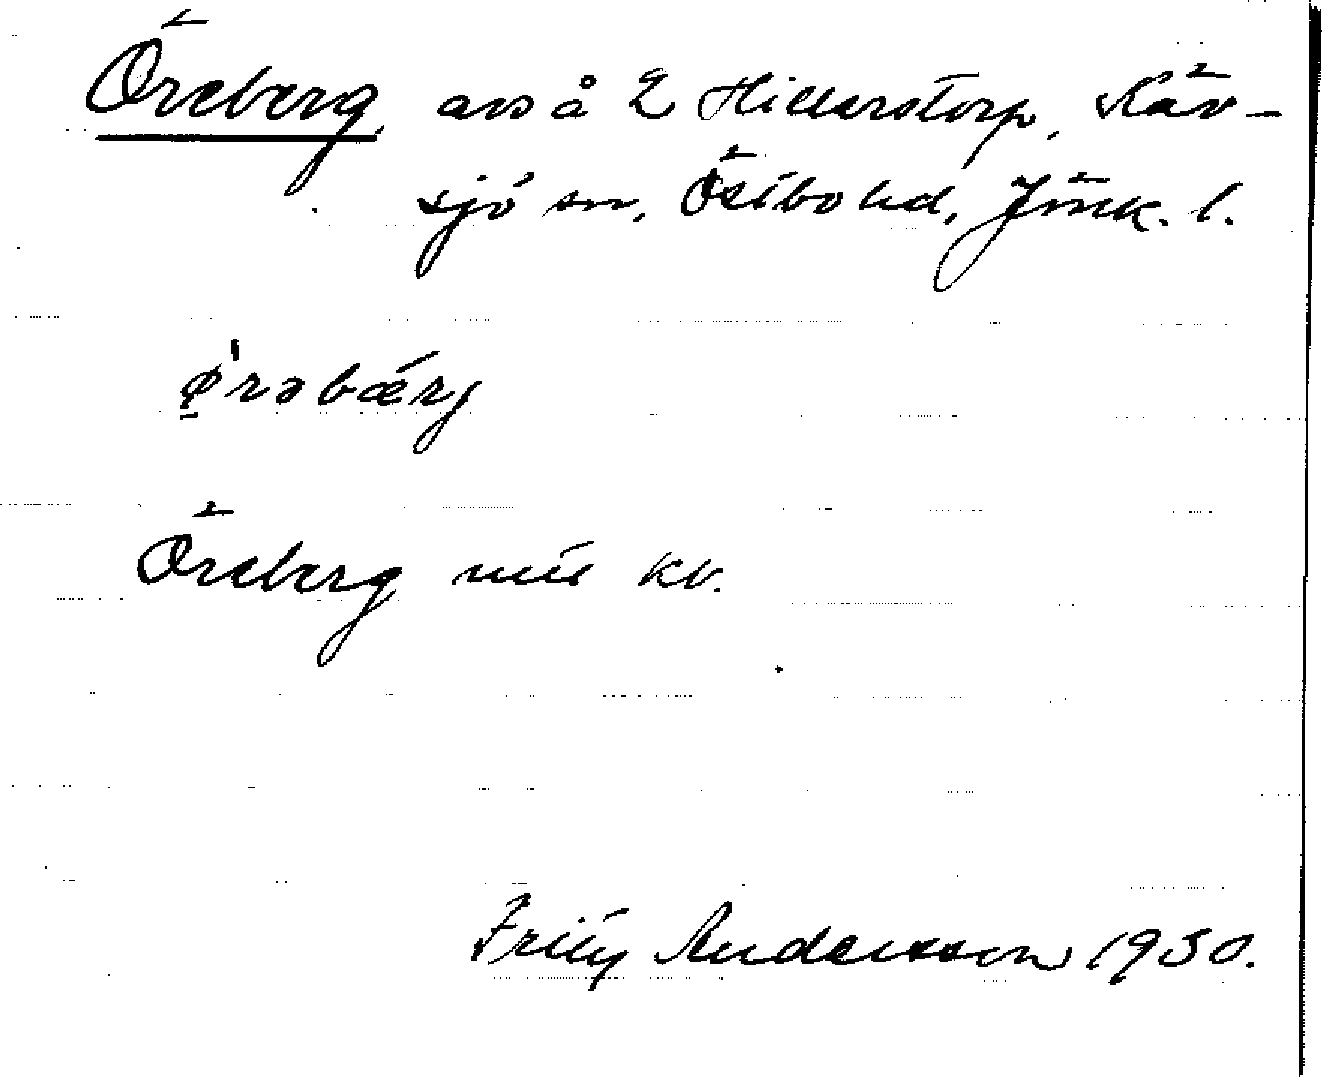 Öreberg, avs å 2 Hillerstorp, Käv-
sjö sn, Östbo hd, Jönk. l.
ø̱'rəbærg
Öreberg
Andersson 1930.